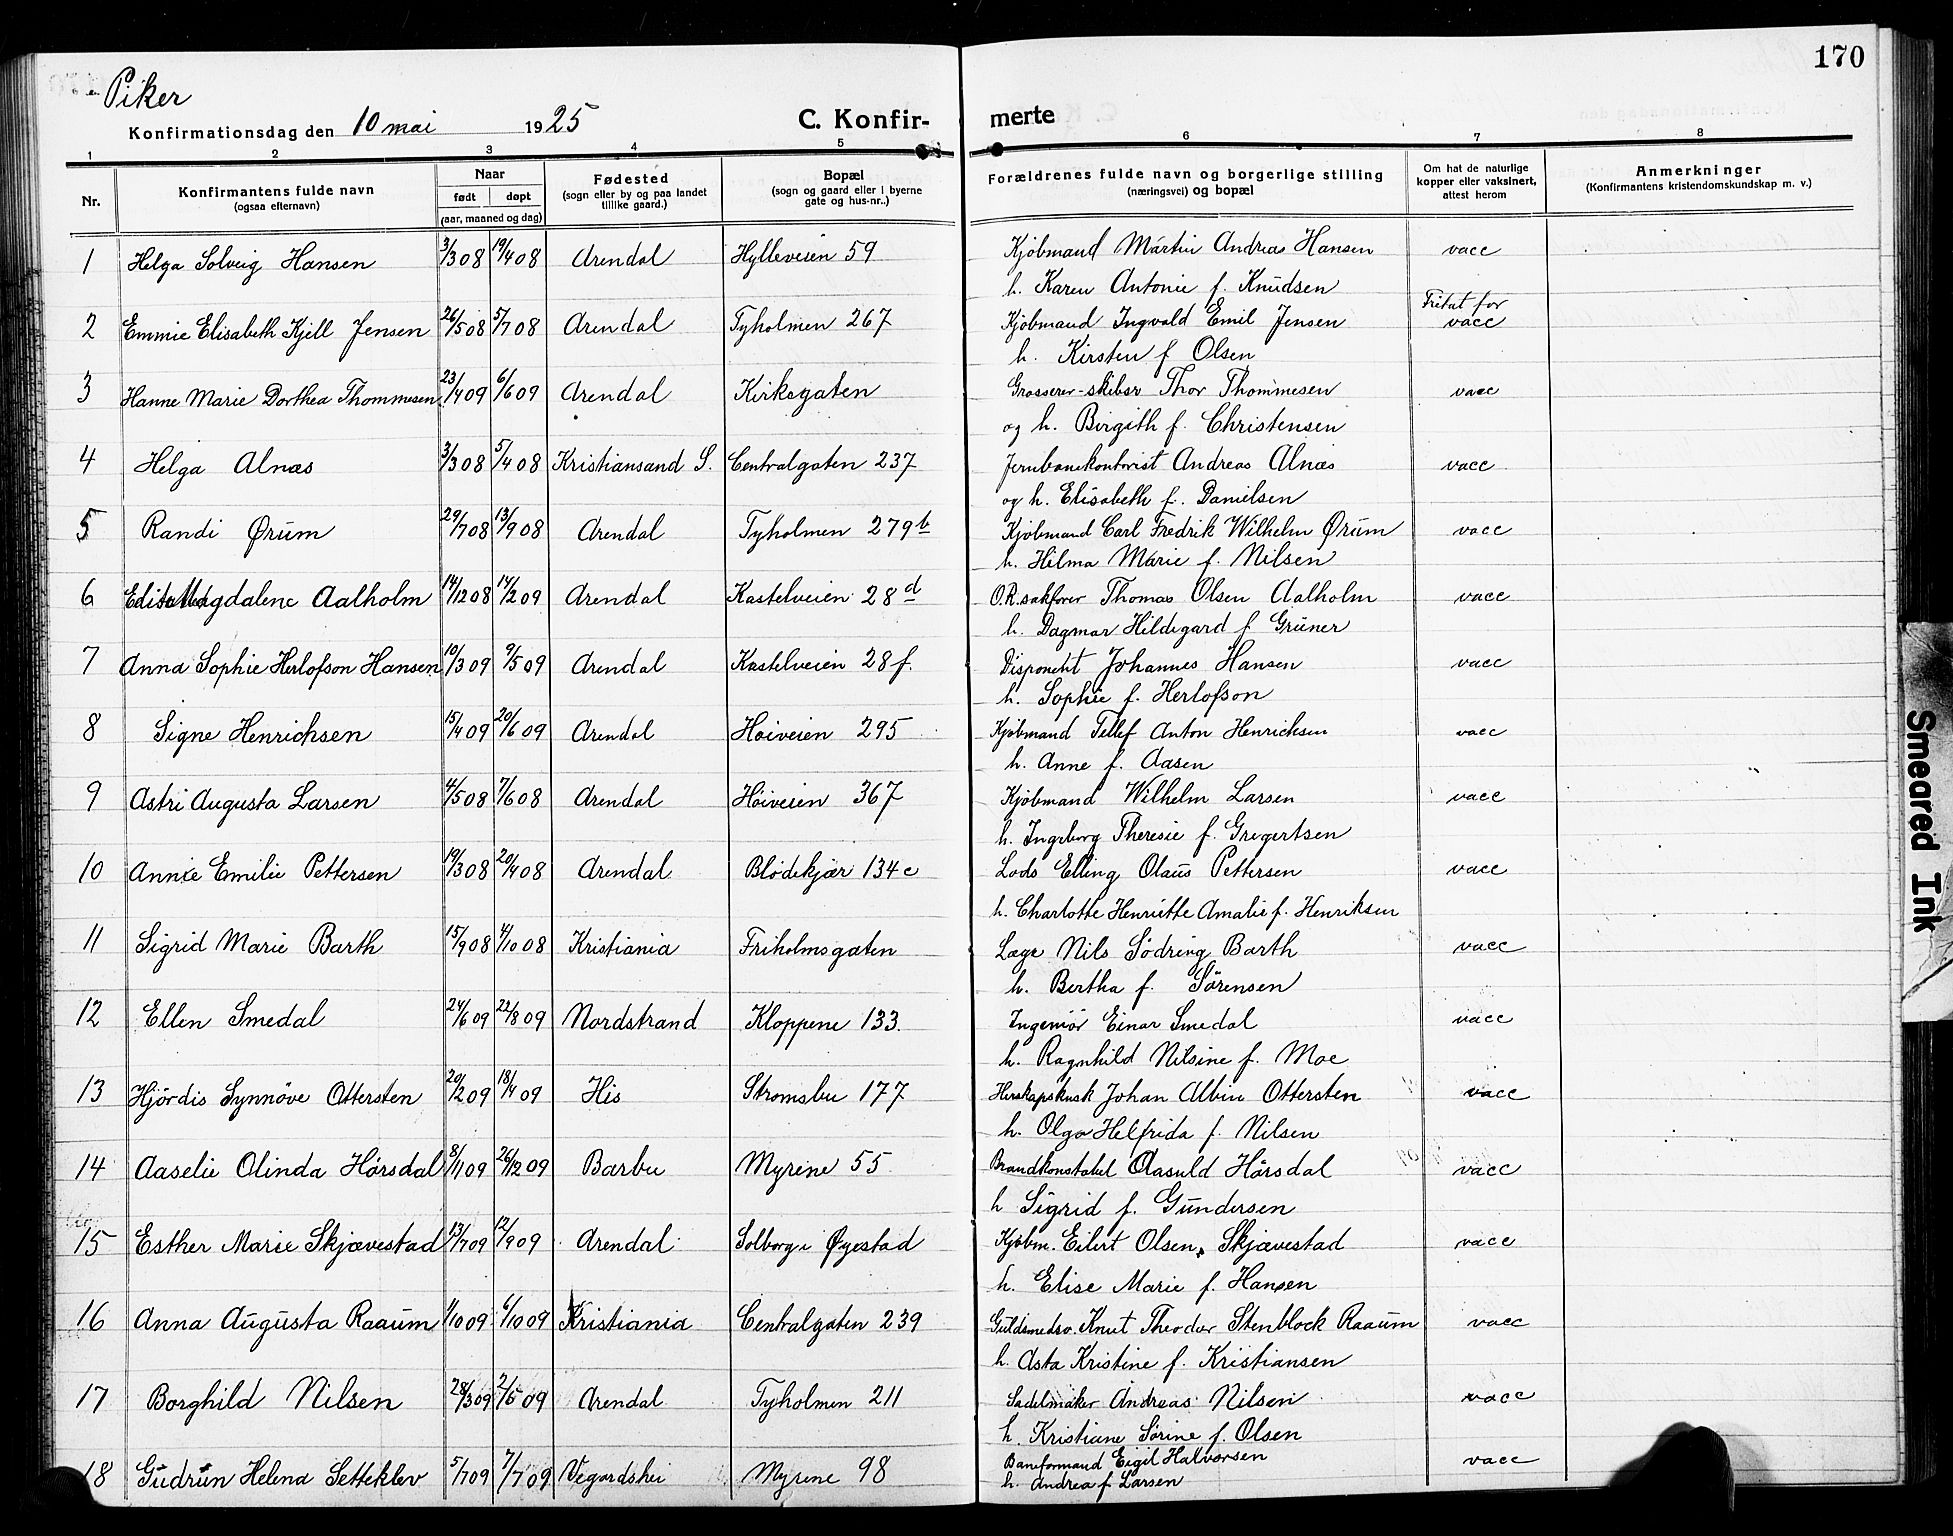 170
Piker
Konfirmationsdag den 10 mai 1925
C. Konfir-
merte
1 2 3 4 5 6 7 8
Nr.
Konfirmantens fulde navn
(ogsaa efternavn)
Naar
født døpt
(aar, maaned og dag)
Fødested
(sogn eller by og paa landet
tillike gaard.)
Bopæl
(sogn og gaard eller i byerne
gate og hus-nr..)
Forældrenes fulde navn og borgerlige stilling
(næringsvei) og bopæl
Om hat de naturlige
kopper eller vaksinert,
attest herom
Anmerkninger
(Konfirmantens kristendomskundskap m. v.)
1 Helga Solveig Hansen 3/3 08 19/4 08 Arendal Hylleveien 59 Kjøbmand Martin Andreas Hansen vacc
h. Karen Antonie f. Knudsen
2 Emmie Elisabeth Kjell Jensen 26/5 08 5/7 08 Arendal Tyholmen 267 Kjøbmand Ingvald Emil Jensen Fritat for vacc
h. Kirsten f Olsen
3 Hanne Marie Dorthea Thommesen 23/4 09 6/6 09 Arendal Kirkegaten Grosserer-skibsr Thor Thommesen vacc
og h. Birgith f. Christensen
4 Helga Alnæs 3/3 08 5/4 08 Kristiansand S. Centralgaten 237 Jernbanekontorist Andreas Alnæs vacc
og h. Elisabeth f. Danielsen
5 Randi Ørum 29/7 08 13/9 08 Arendal Tyholmen 279 b Kjøbmand Carl Fredrik Wilhelm Ørum vacc
h. Hilma Marie f. Nilsen
6 Edith Magdalene Aalholm 14/12 08 14/2 09 Arendal Kastelveien 28 d O.R.sakfører Thomas Olsen Aalholm vacc
h. Dagmar Hildegard f Grüner
7 Anna Sophie Herlofson Hansen 10/3 09 9/5 09 Arendal Kastelveien 28 f. Disponent Johannes Hansen vacc
h. Sophie f. Herlofson
8 Signe Henrichsen 15/4 09 20/6 09 Arendal Høiveien 295 Kjøbmand Tellef Anton Henrichsen vacc
h. Anne f. Aasen
9 Astri Augusta Larsen 4/5 08 7/6 08 Arendal Høiveien 367 Kjøbmand Wilhelm Larsen vacc
h. Ingeborg Theresie f. Gregertsen
10 Annie Emilie Pettersen 19/3 08 20/4 08 Arendal Blødekjær 134 c Lods Elling Olaus Pettersen vacc
h. Charlotte Henriette Amalie f. Henriksen
11 Sigrid Marie Barth 15/9 08 4/10 08 Kristiania Friholmsgaten Læge Nils Sødring Barth vacc
h. Bertha f. Sørensen
12 Ellen Smedal 24/6 09 22/8 09 Nordstrand Kloppene 133. Ingeniør Einar Smedal vacc
h. Ragnhild Nilsine f. Moe
13 Hjørdis Synnøve Ottersten 20/2 09 18/4 09 His Strømsbu 177 Herskapskusk Johan Albin Ottersten vacc
h. Olga Helfrida f. Nilsen
14 Aaselie Olinda Hørsdal 8/11 09 26/12 09 Barbu Myrene 55 Brandkonstabel Aasuld Hørsdal vacc
h Sigrid f. Gundersen
15 Esther Marie Skjævestad 13/7 09 12/9 09 Arendal Solborg i Øyestad Kjøbm. Eilert Olsen Skjævestad vacc
h. Elise Marie f. Hansen
16 Anna Augusta Raaum 1/10 09 6/10 09 Kristiania Centralgaten 239 Guldsmedsv. Knut Theodor Stenblock Raaum vacc
h. Asta Kristine f. Kristiansen
17 Borghild Nilsen 28/3 09 2/5 09 Arendal Tyholmen 211 Sadelmaker Andreas Nilsen vacc
h. Kristiane Sørine f. Olsen
18 Gudrun Helena Setteklev 5/7 09 7/7 09 Vegardshei Myrene 98 Baneformand Eigil Halvorsen vacc
h. Andrea f Larsen
Smeared Ink